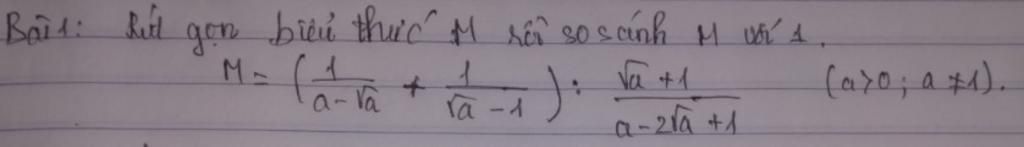 Bài 1: Rút gọn biểu thức M rồi so sánh M với 1.
M = (1/(a-√a) + 1/(√a-1)) : (√a+1)/(a-2√a+1) (a>0; a≠1).